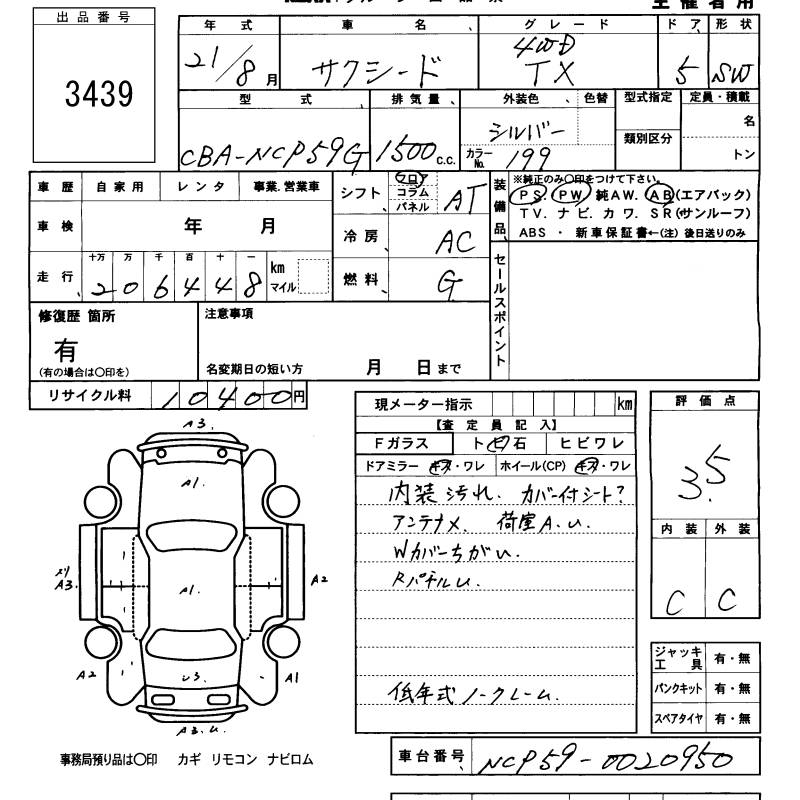 主催者用
出品番号
3439
年式 車名 グレード ドア 形状
21/8月 サクシード 4WD TX 5 SW
型式 排気量 外装色 色替 型式指定 定員・積載
CBA-NCP59G 1500c.c. シルバー 類別区分 名
カラーNo. 199 トン
車歴 自家用 レンタ 事業.営業車
シフト フロア コラム パネル AT
装備品
※純正のみ〇印をつけて下さい。
PS. PW. 純AW. AB(エアバック)
TV. ナビ. カワ. SR(サンルーフ)
ABS ・ 新車保証書←(注) 後日送りのみ
車検 年 月
冷房 AC
走行 十万 万 千 百 十 一 km マイル
206448
燃料 G
セールスポイント
修復歴 箇所
有
(有の場合は〇印を)
注意事項
名変期日の短い方 月 日まで
リサイクル料 10400円
現メーター指示 km
【査定員記入】
Fガラス トビ石 ヒビワレ
ドアミラー キズ・ワレ ホイール(CP) キズ・ワレ
内装汚れ. カバー付シート?
アンテナメ. 荷室A.U.
Wカバーちがい.
RパネルU.
低年式ノークレーム.
評価点
3.5
内装 外装
C C
ジャッキ工具 有・無
パンクキット 有・無
スペアタイヤ 有・無
A3.
A1.
A3.
A1.
A2
A2
U3.
A1
A3.U.
事務局預り品は〇印 カギ リモコン ナビロム
車台番号 NCP59-0020950